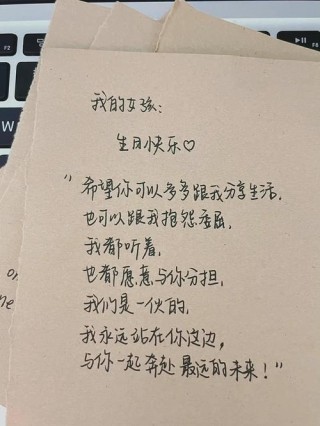 我的女孩：
生日快乐♡
“希望你可以多多跟我分享生活，
也可以跟我抱怨委屈，
我都听着，
也都愿意与你分担，
我们是一伙的，
我永远站在你这边，
与你一起奔赴最远的未来！”